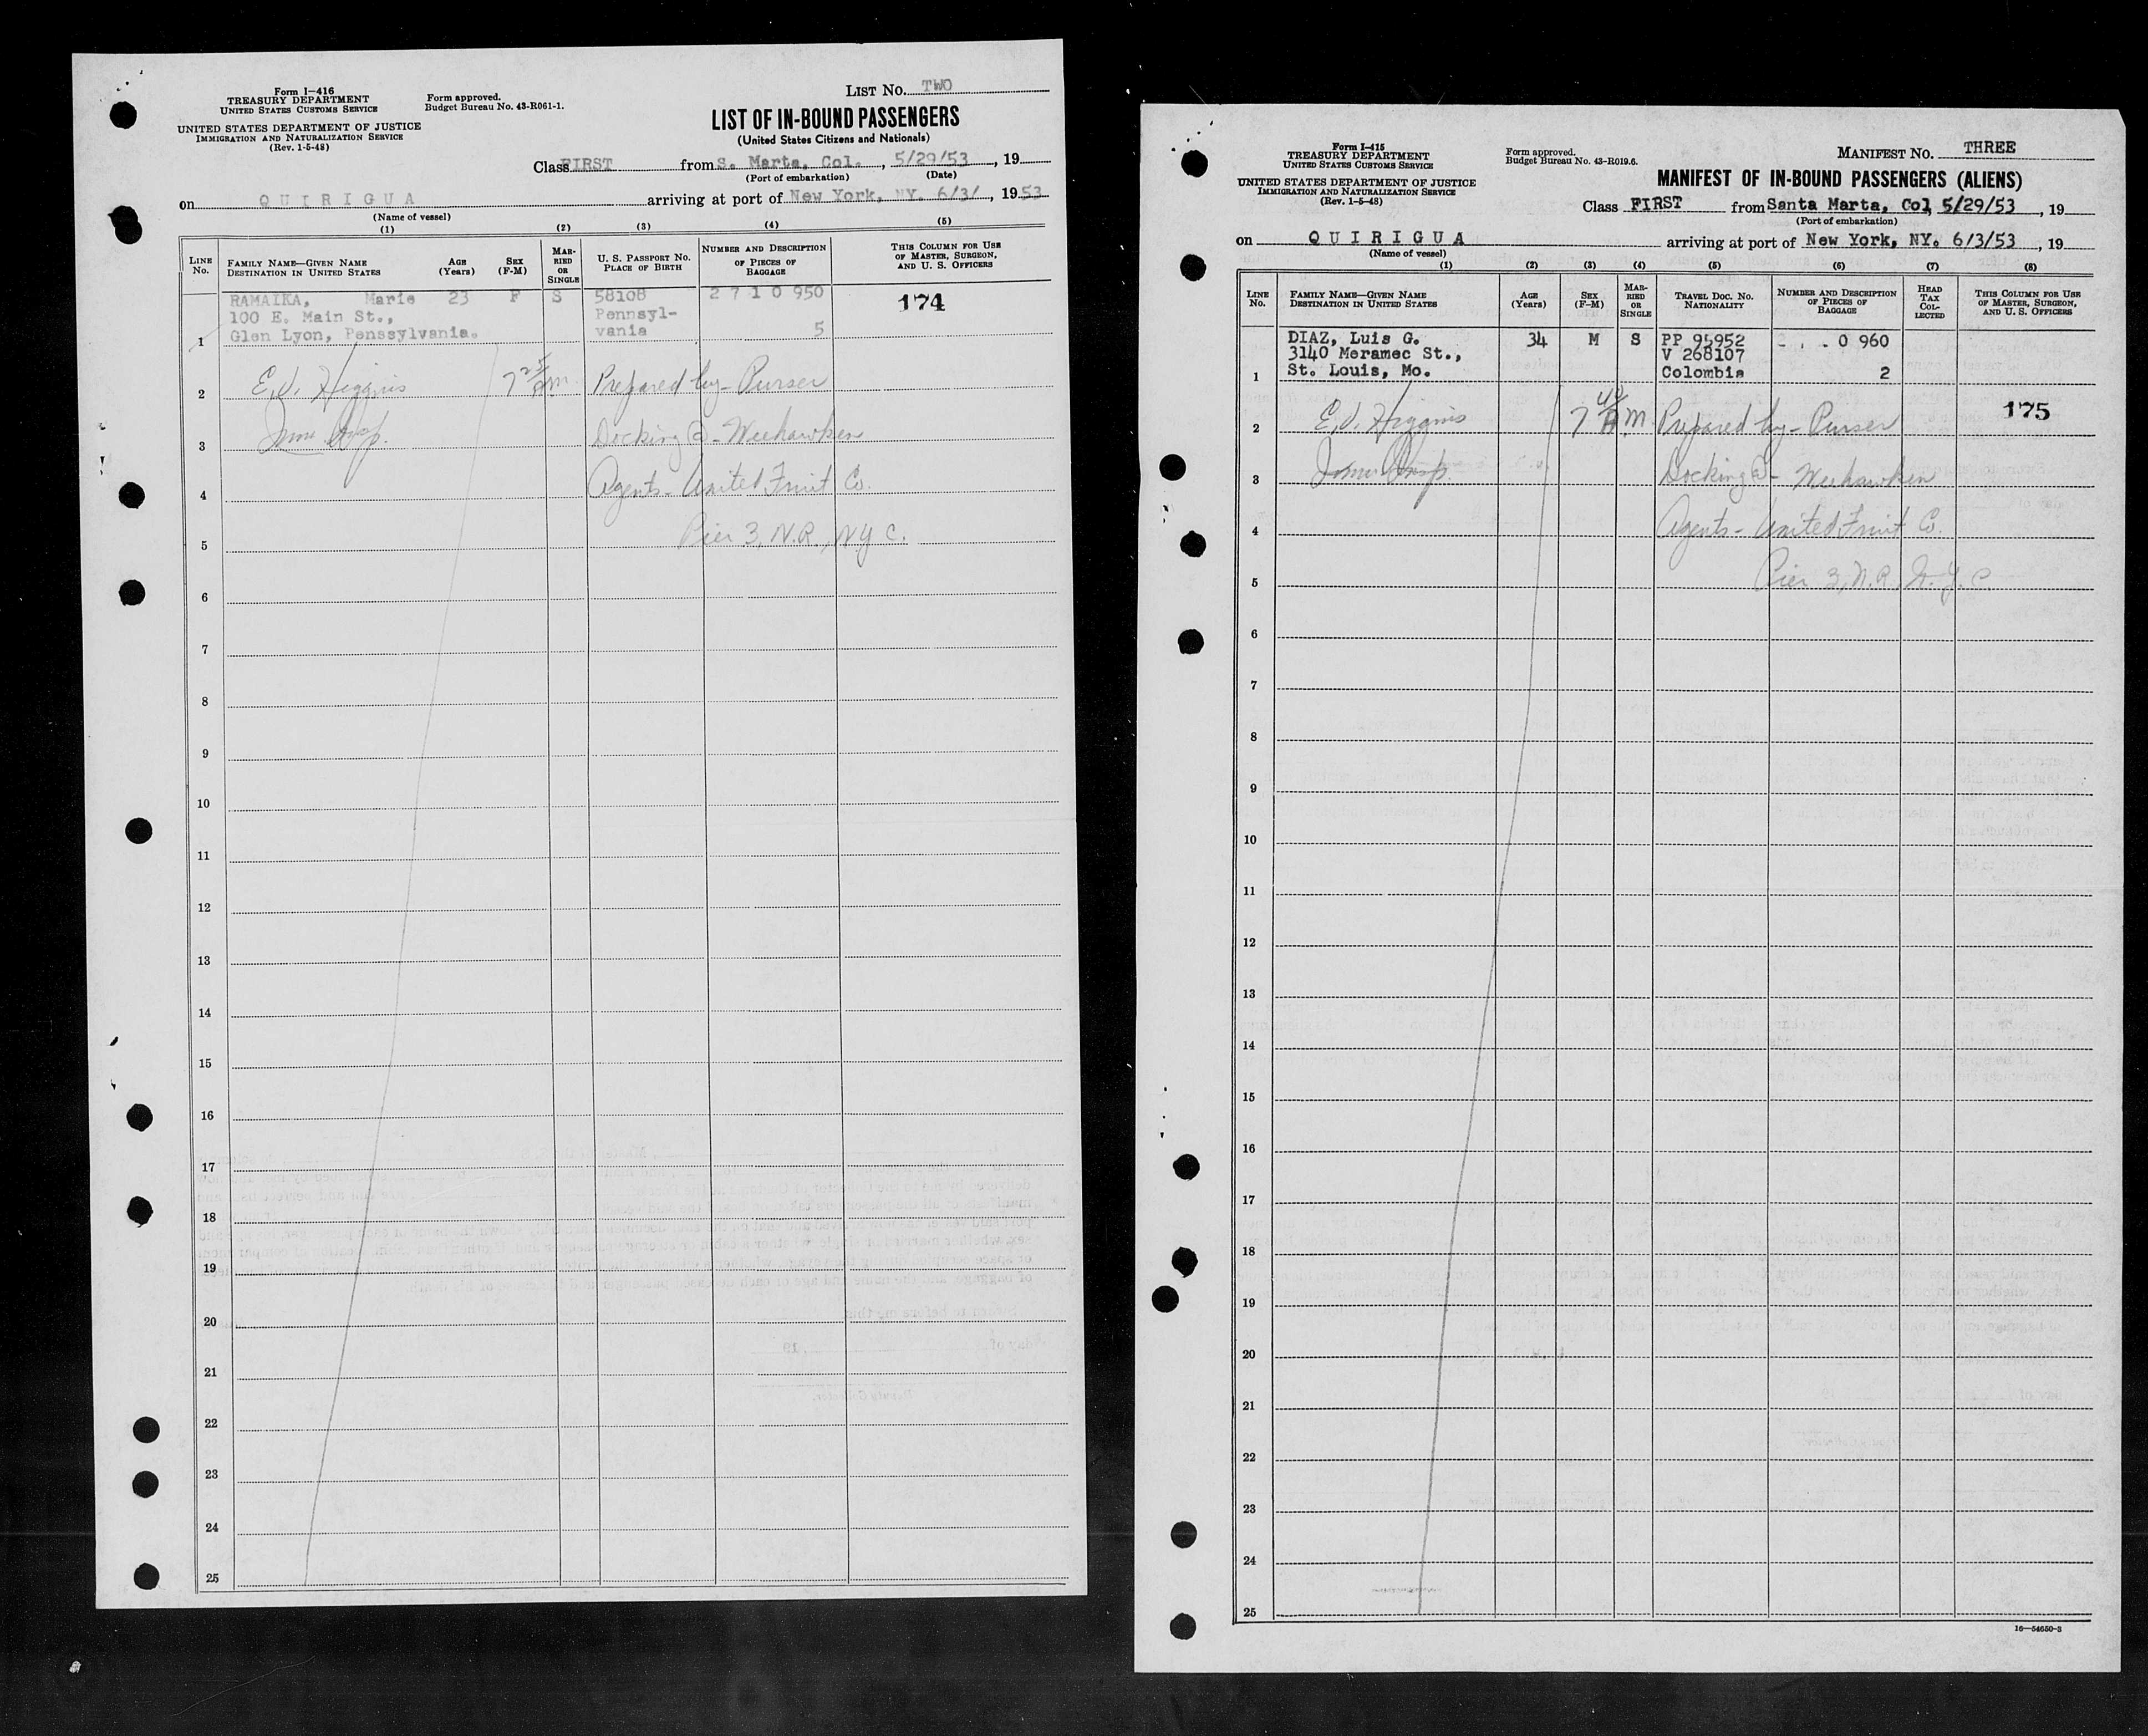 Form I-416
TREASURY DEPARTMENT
UNITED STATES CUSTOMS SERVICE
UNITED STATES DEPARTMENT OF JUSTICE
IMMIGRATION AND NATURALIZATION SERVICE
(Rev. 1-5-48)
Form approved.
Budget Bureau No. 43-R061-1.
LIST NO. TWO
LIST OF IN-BOUND PASSENGERS
(United States Citizens and Nationals)
Class FIRST from S. Marta, Col. , 5/29/53 , 19
(Port of embarkation) (Date)
on QUIRIGUA arriving at port of New York, NY. 6/3/ , 1953
(Name of vessel)
(1) (2) (3) (4) (5)
LINE NO. FAMILY NAME—GIVEN NAME DESTINATION IN UNITED STATES AGE (Years) SEX (F-M) MARRIED OR SINGLE U. S. PASSPORT NO. PLACE OF BIRTH NUMBER AND DESCRIPTION OF PIECES OF BAGGAGE THIS COLUMN FOR USE OF MASTER, SURGEON, AND U. S. OFFICERS
RAMAIKA, Marie 23 F S 58108 2 7 1 0 950 174
100 E. Main St., Pennsyl-
1 Glen Lyon, Penssylvania. vania 5
2 E.J. Higgins 7 25 AM Prepared by - Purser
3 Imm. Insp. Docking @ - Weehawken
4 Agents - United Fruit Co.
5 Pier 3, N.R., N Y C.
6
7
8
9
10
11
12
13
14
15
16
17
18
19
20
21
22
23
24
25
Form I-415
TREASURY DEPARTMENT
UNITED STATES CUSTOMS SERVICE
UNITED STATES DEPARTMENT OF JUSTICE
IMMIGRATION AND NATURALIZATION SERVICE
(Rev. 1-5-48)
Form approved.
Budget Bureau No. 43-R019.6.
MANIFEST NO. THREE
MANIFEST OF IN-BOUND PASSENGERS (ALIENS)
Class FIRST from Santa Marta, Col, 5/29/53 , 19
(Port of embarkation)
on QUIRIGUA arriving at port of New York, NY. 6/3/53 , 19
(Name of vessel)
(1) (2) (3) (4) (5) (6) (7) (8)
LINE NO. FAMILY NAME—GIVEN NAME DESTINATION IN UNITED STATES AGE (Years) SEX (F-M) MARRIED OR SINGLE TRAVEL DOC. NO. NATIONALITY NUMBER AND DESCRIPTION OF PIECES OF BAGGAGE HEAD TAX COLLECTED THIS COLUMN FOR USE OF MASTER, SURGEON, AND U. S. OFFICERS
DIAZ, Luis G. 34 M S PP 95952 0 960
3140 Meramec St., V 268107
1 St. Louis, Mo. Colombia 2
2 E.J. Higgins 7 40 AM Prepared by - Purser 175
3 Imm. Insp. Docking @ - Weehawken
4 Agents - United Fruit Co.
5 Pier 3, N.R., N.Y.C.
6
7
8
9
10
11
12
13
14
15
16
17
18
19
20
21
22
23
24
25
16—54650-3